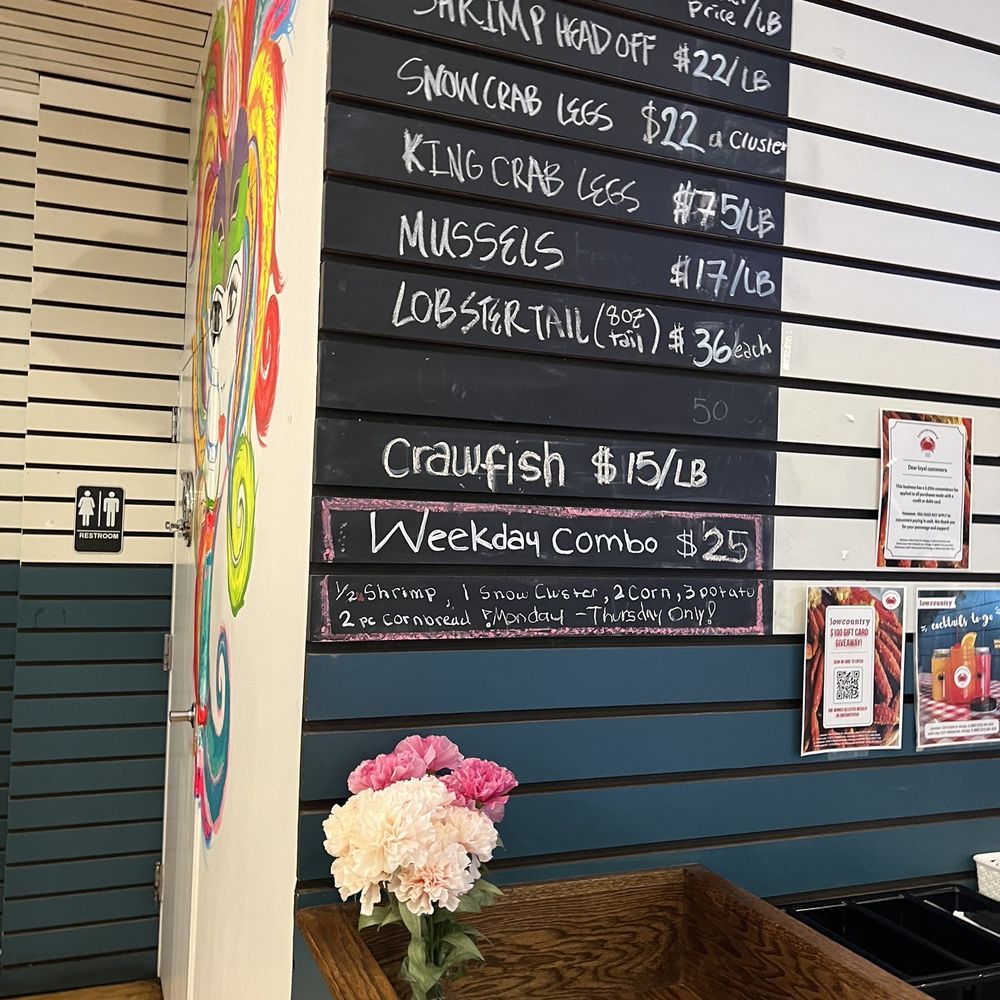 Price /LB
SHRIMP HEAD OFF $22/LB
SNOW CRAB LEGS $22 a Cluster
KING CRAB LEGS $75/LB
MUSSELS $17/LB
LOBSTER TAIL (8oz tail) $36 each
50
Crawfish $15/LB
Weekday Combo $25
1/2 Shrimp, 1 Snow Cluster, 2 Corn, 3 potato
2 pc cornbread Monday - Thursday Only!
RESTROOM
Dear loyal customers:
lowcountry
$100 GIFT CARD
GIVEAWAY!
SCAN QR CODE TO ENTER
lowcountry
cocktails to go